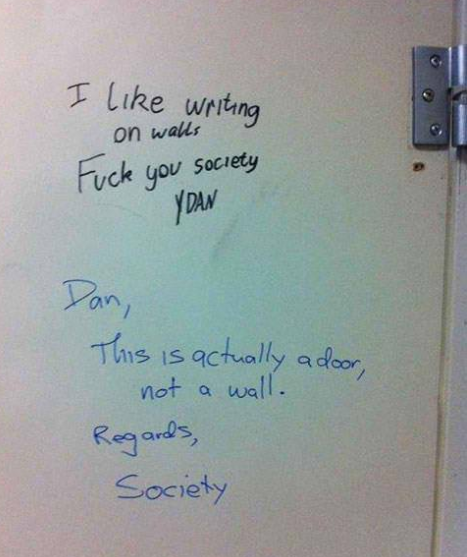 I like writing
on walls
Fuck you society
YDAN
Dan,
This is actually a door,
not a wall.
Regards,
Society